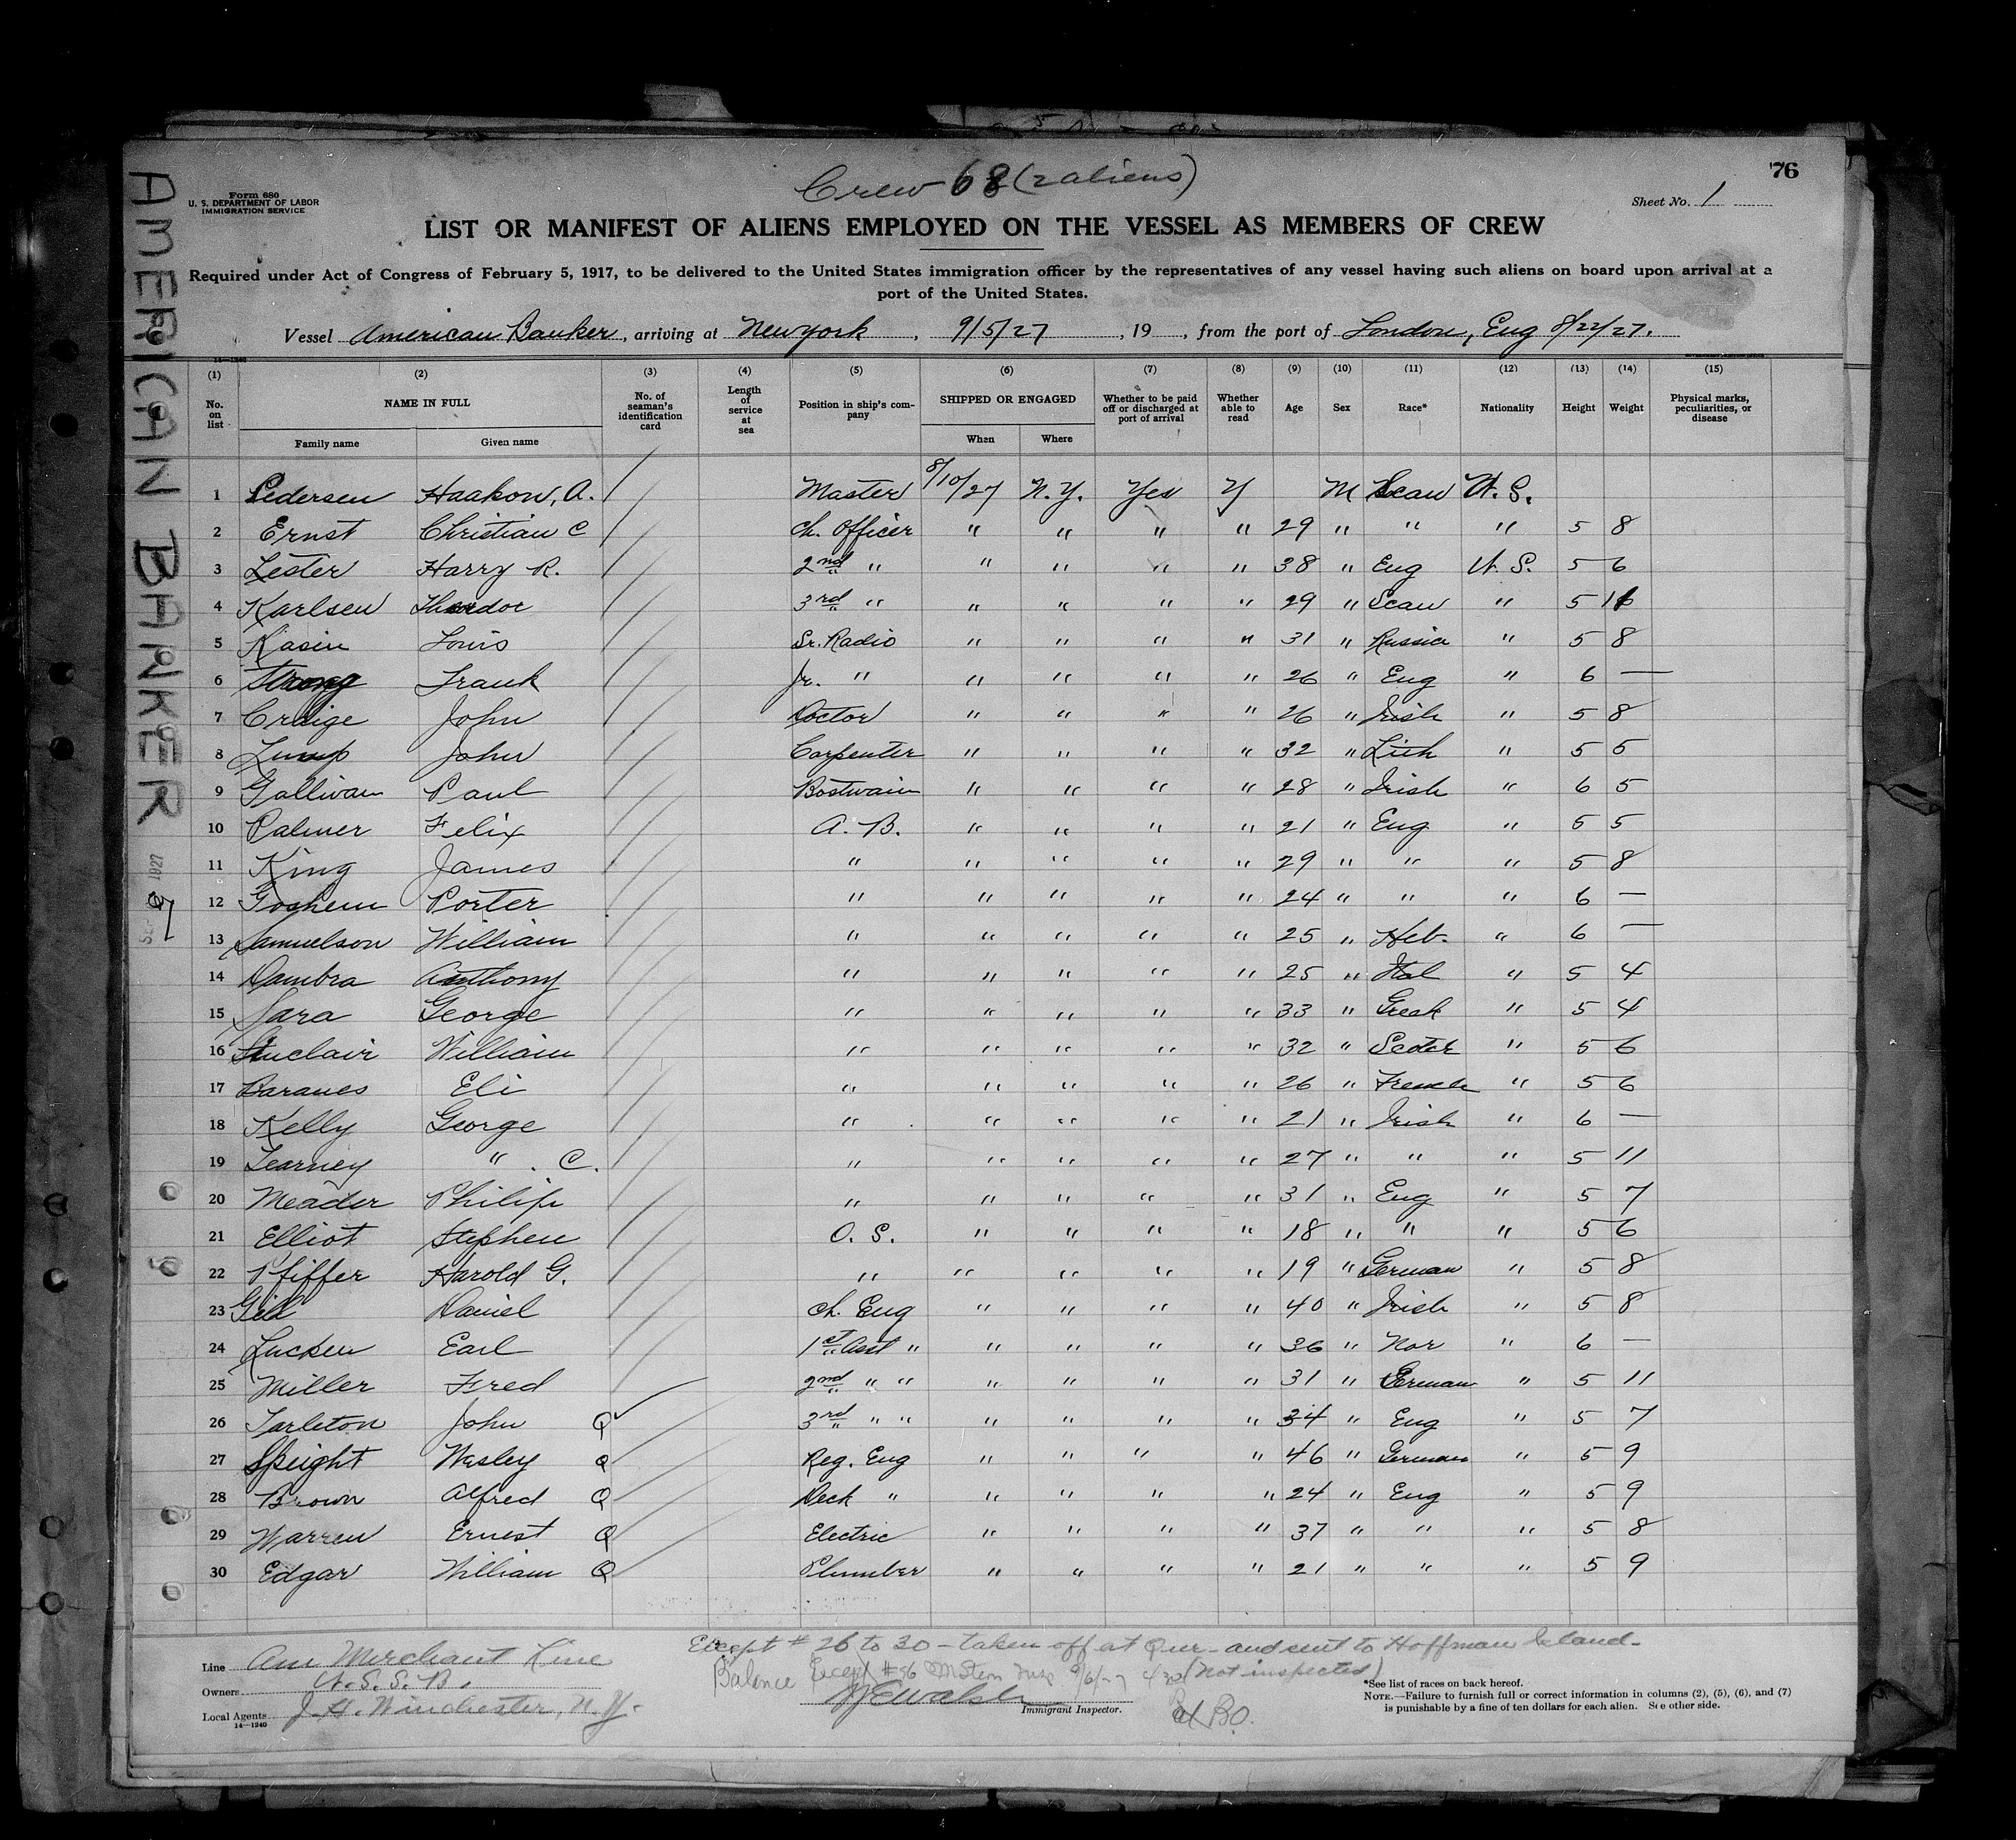 Crew 68 (2 aliens)
76
Form 680
U. S. DEPARTMENT OF LABOR
IMMIGRATION SERVICE
Sheet No. 1
LIST OR MANIFEST OF ALIENS EMPLOYED ON THE VESSEL AS MEMBERS OF CREW
Required under Act of Congress of February 5, 1917, to be delivered to the United States immigration officer by the representatives of any vessel having such aliens on board upon arrival at a
port of the United States.
Vessel American Banker, arriving at New York, 9/5/27, 19, from the port of London, Eng 8/22/27.
AMERICAN BANKER
1927
14—1240
(1) (2) (3) (4) (5) (6) (7) (8) (9) (10) (11) (12) (13) (14) (15)
No. on list NAME IN FULL No. of seaman's identification card Length of service at sea Position in ship's company SHIPPED OR ENGAGED Whether to be paid off or discharged at port of arrival Whether able to read Age Sex Race* Nationality Height Weight Physical marks, peculiarities, or disease
Family name Given name When Where
1 Pedersen Haakon, A. Master 8/10/27 N.Y. Yes Y M Scan U.S.
2 Ernst Christian C Ch. Officer " " " " 29 " " " 5 8
3 Lester Harry R. 2nd " " " " " 38 " Eng U.S. 5 6
4 Karlsen 3rd " " " " " 29 " Scan " 5
5 Kasin Louis Sr. Radio " " " " 31 " Russia " 5 8
6 Strong Frank Jr. " " " " " 26 " Eng " 6 —
7 Craige John Doctor " " " " 26 " Irish " 5 8
8 John Carpenter " " " " 32 " Lith " 5 5
9 Gallivan Paul Bostwain " " " " 28 " Irish " 6 5
10 Palmer Felix A.B. " " " " 21 " Eng " 5 5
11 King James " " " " " 29 " " " 5 8
12 Goshem Porter " " " " " 24 " " " 6 —
13 Samuelson William " " " " " 25 " Heb. " 6 —
14 Dambra Anthony " " " " " 25 " Ital " 5 4
15 Sara George " " " " " 33 " Greek " 5 4
16 Sinclair William " " " " " 32 " Scotch " 5 6
17 Baranes Eli " " " " " 26 " French " 5 6
18 Kelly George " " " " " 21 " Irish " 6 —
19 Tearney " . C. " " " " " 27 " " " 5 11
20 Meader Philip " " " " " 31 " Eng " 5 7
21 Elliot Stephen O. S. " " " " 18 " " " 5 6
22 Pfiffer Harold G. " " " " " 19 " German " 5 8
23 Gill Daniel Ch. Eng " " " " 40 " Irish " 5 8
24 Lucken Earl 1st Asst " " " " " 36 " Nor " 6 —
25 Miller Fred 2nd " " " " " " 31 " German " 5 11
26 Tarleton John Q 3rd " " " " " " 34 " Eng " 5 7
27 Speight Wesley Q Reg. Eng " " " " 46 " German " 5 9
28 Brown Alfred Q Deck " " " " " 24 " Eng " 5 9
29 Warren Ernest Q Electric " " " " 37 " " " 5 8
30 Edgar William Q Plumber " " " " 21 " " " 5 9
Except # 26 to 30 - taken off at Qur - and sent to Hoffman Island -
Line Am Merchant Line
Balance Except (Not inspected)
Owners U.S.S.B.
Local Agents J. H. Winchester, N.Y.
14—1240
Immigrant Inspector.
*See list of races on back hereof.
NOTE.—Failure to furnish full or correct information in columns (2), (5), (6), and (7)
is punishable by a fine of ten dollars for each alien. See other side.